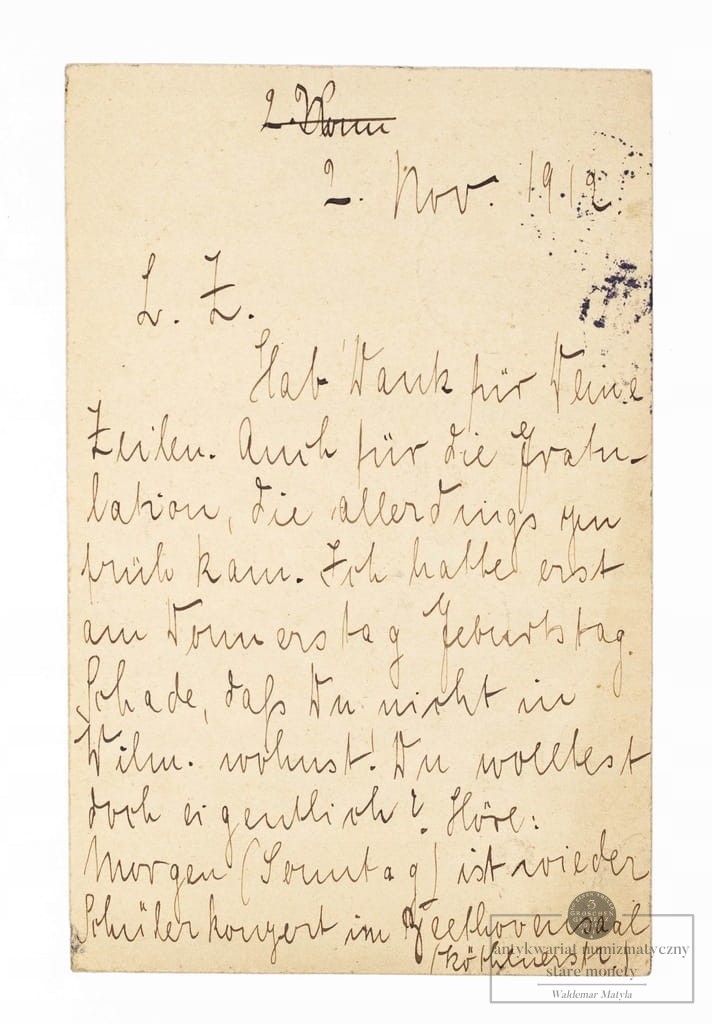 2. Nov. 1912.
L. Z.
Hab Dank für Deine
Zeilen. Auch für die Gratu-
lation, die allerdings zu
früh kam. Ich hatte erst
am Donnerstag Geburtstag.
Schade, daß Du nicht in
Wilm. wohnst! Du wolltest
doch eigentlich? Höre:
Morgen (Sonntag) ist wieder
Schülerkonzert im Beethovensaal
(Köthenerstr.)
3
GROSCHEN
antykwariat numizmatyczny
stare monety
Waldemar Matyla